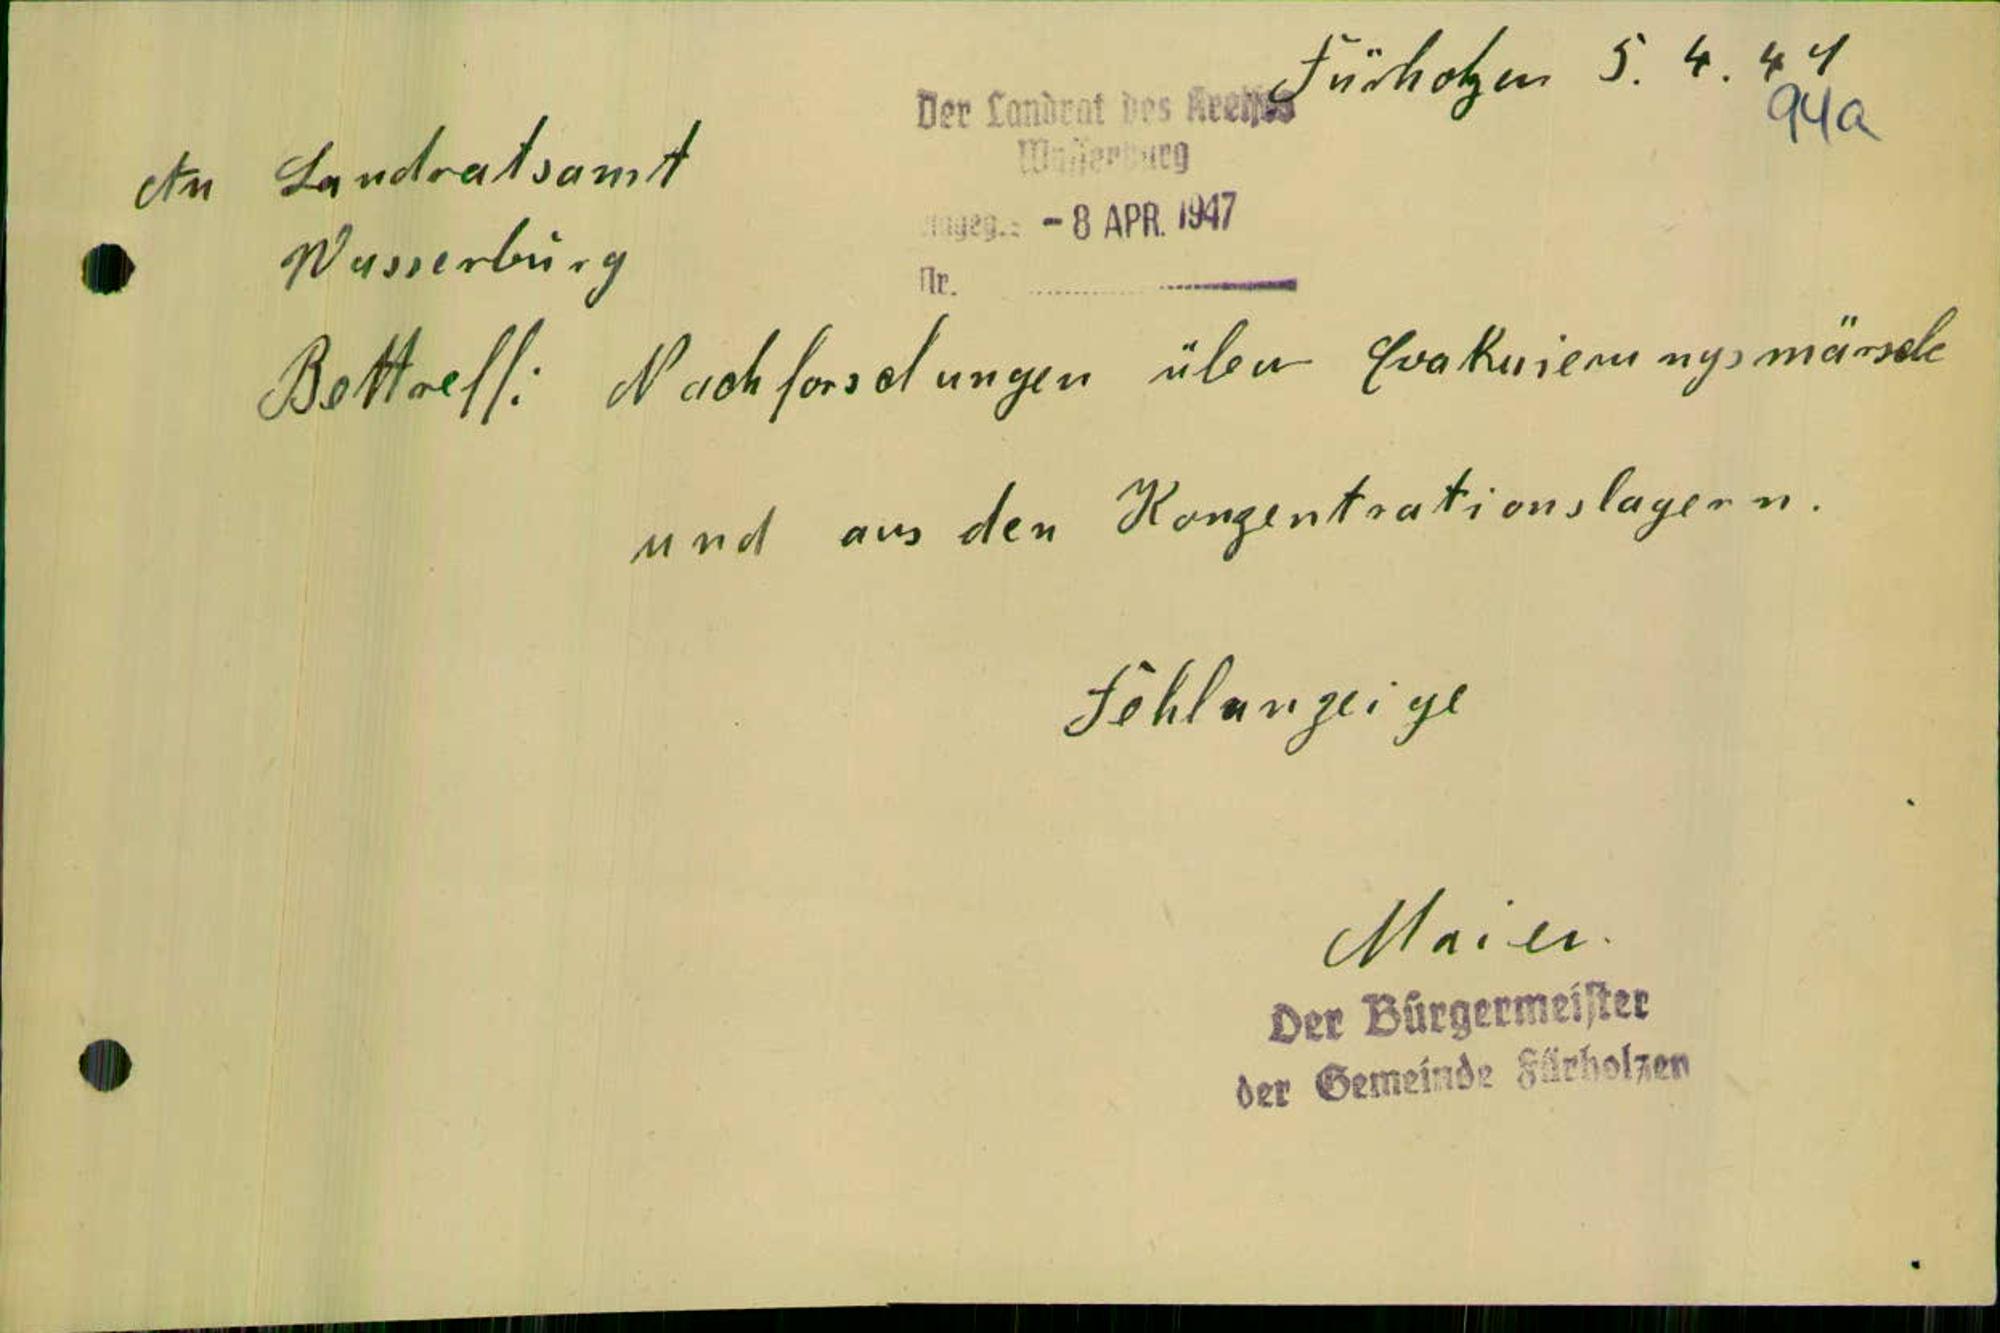 Fürholzen 5. 4. 47
94a
Der Landrat des Kreises
Wasserburg
An Landratsamt
Wasserburg
Eingeg.: - 8 APR. 1947
Nr.
Bettreff: Nachforschungen über Evakuierungsmärsche
und aus den Konzentrationslagern.
Fehlanzeige
Maier.
Der Bürgermeister
der Gemeinde Fürholzen